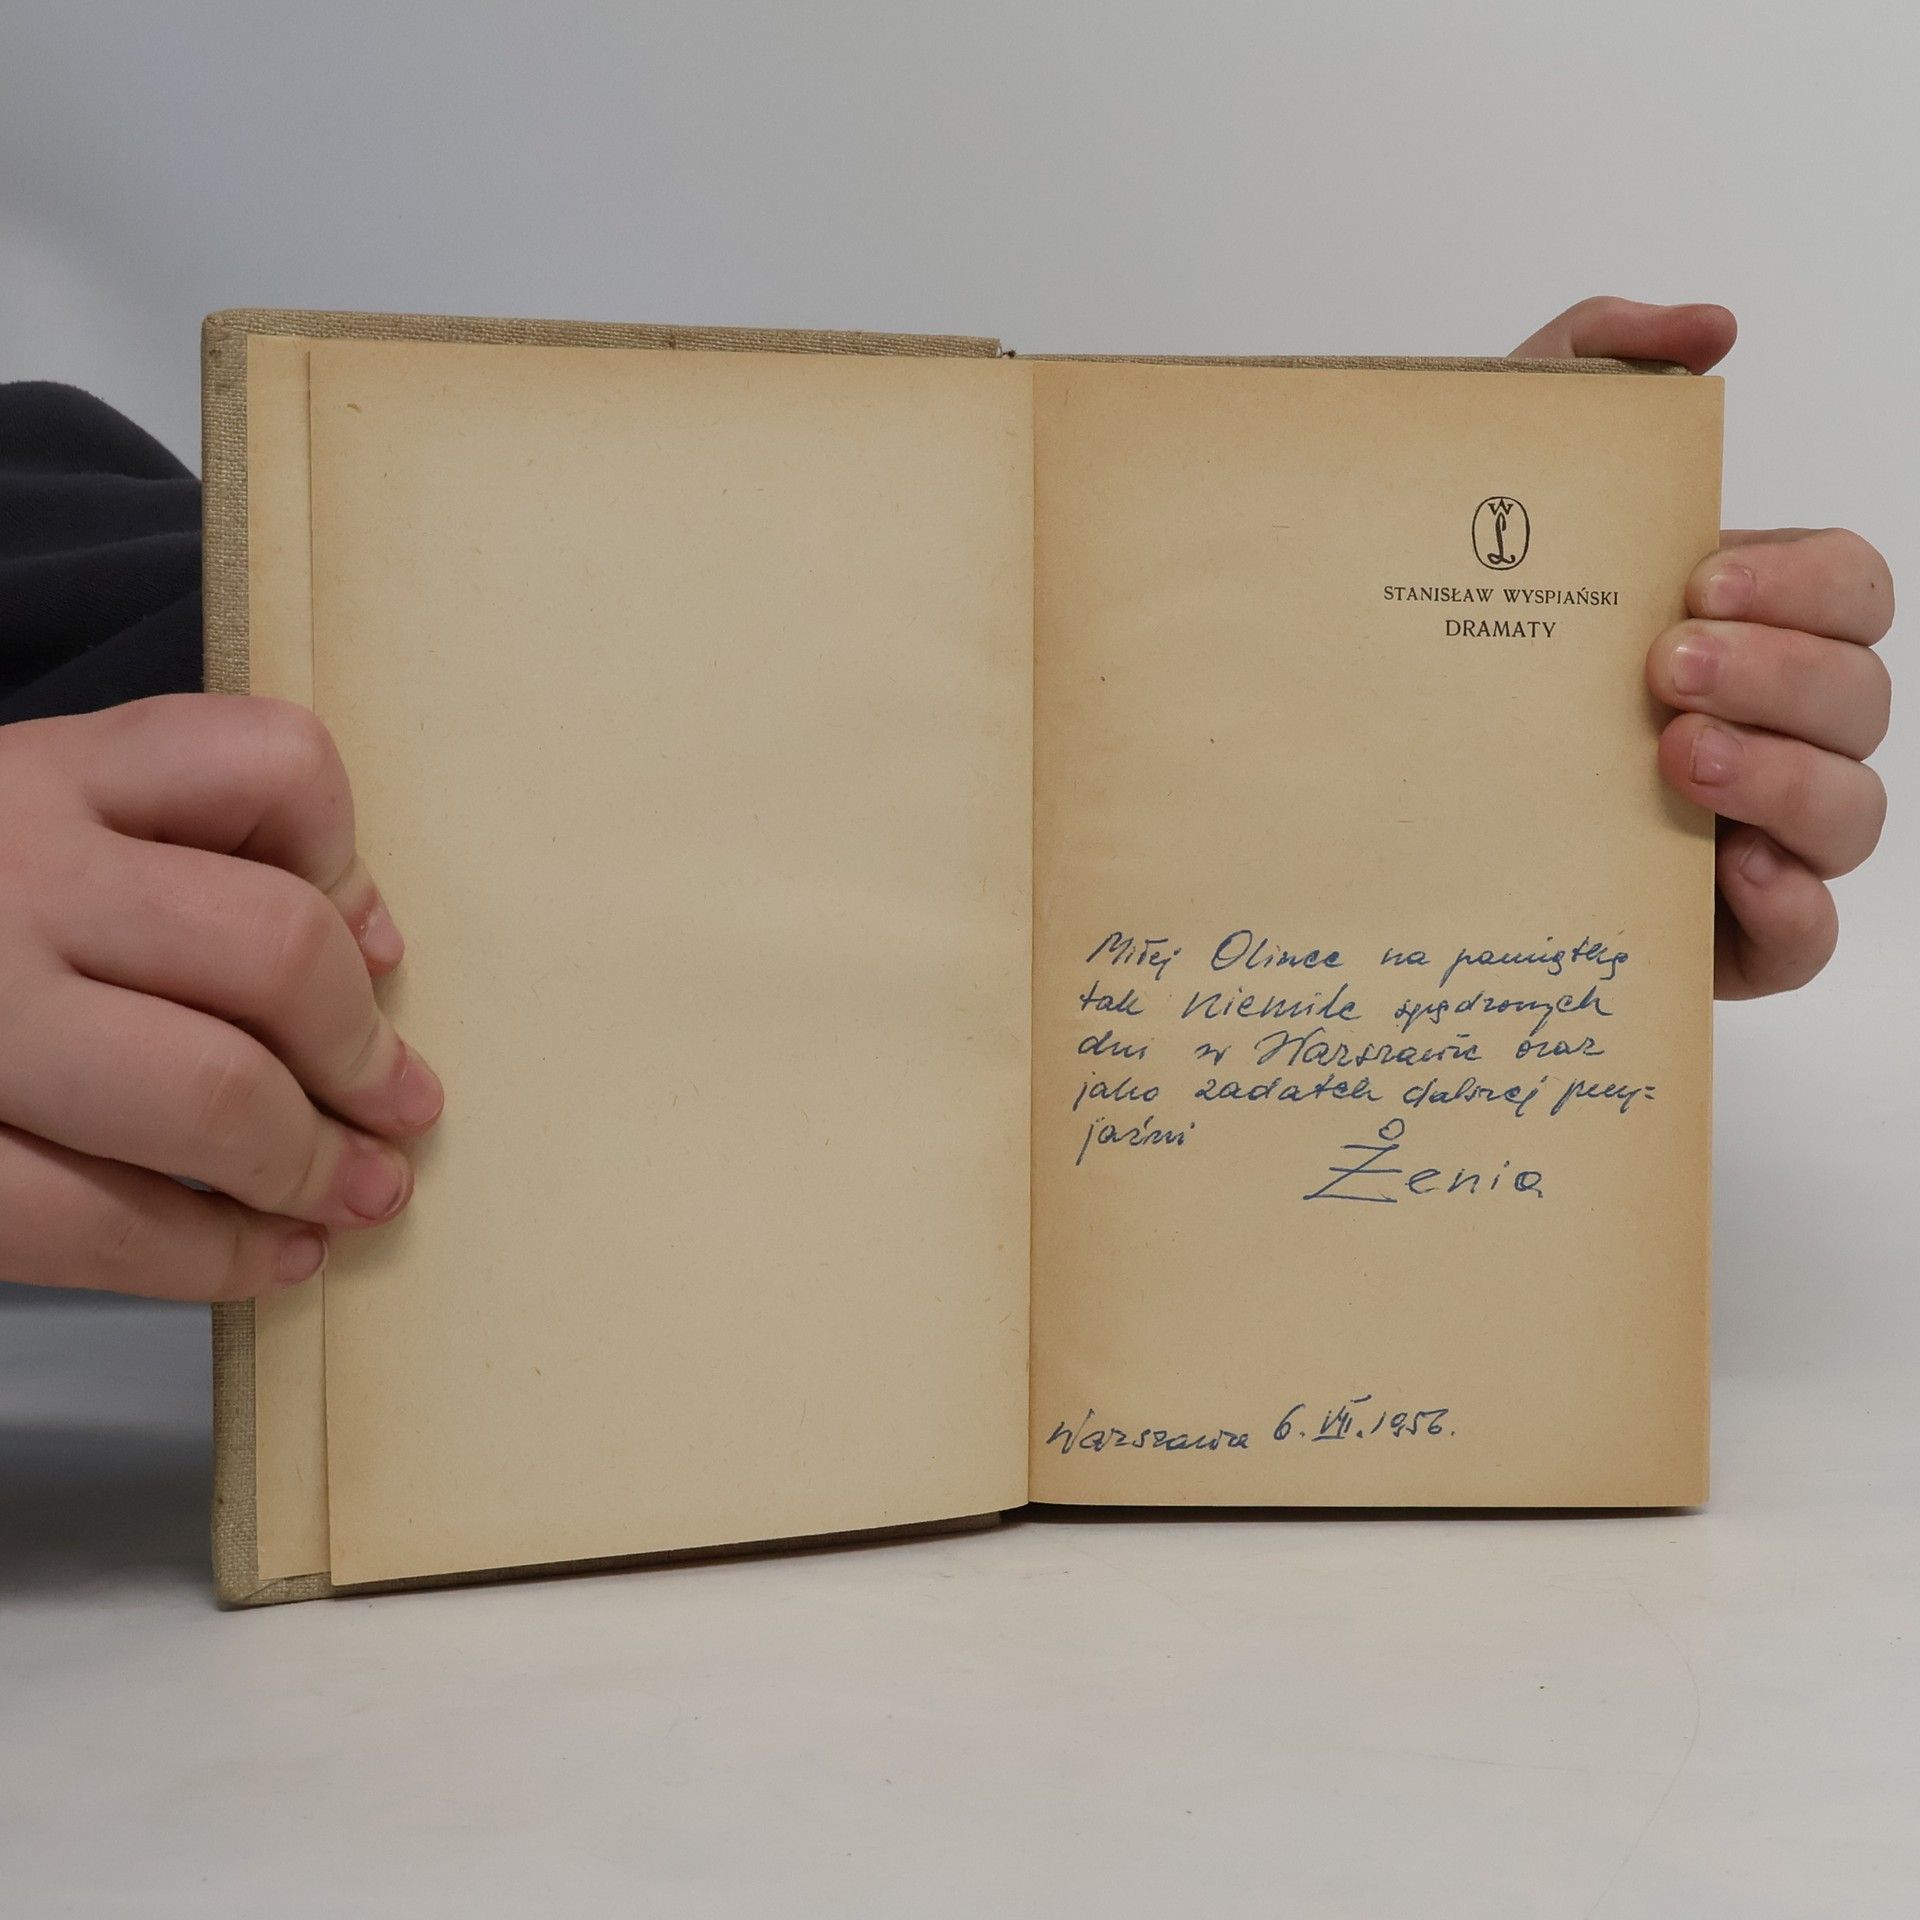 WL
STANISŁAW WYSPIAŃSKI
DRAMATY
Miłej Olince na pamiątkę
tak niemile spędzonych
dni w Warszawie oraz
jako zadatek dalszej przy=
jaźni
Żenia
Warszawa 6. VII. 1956.